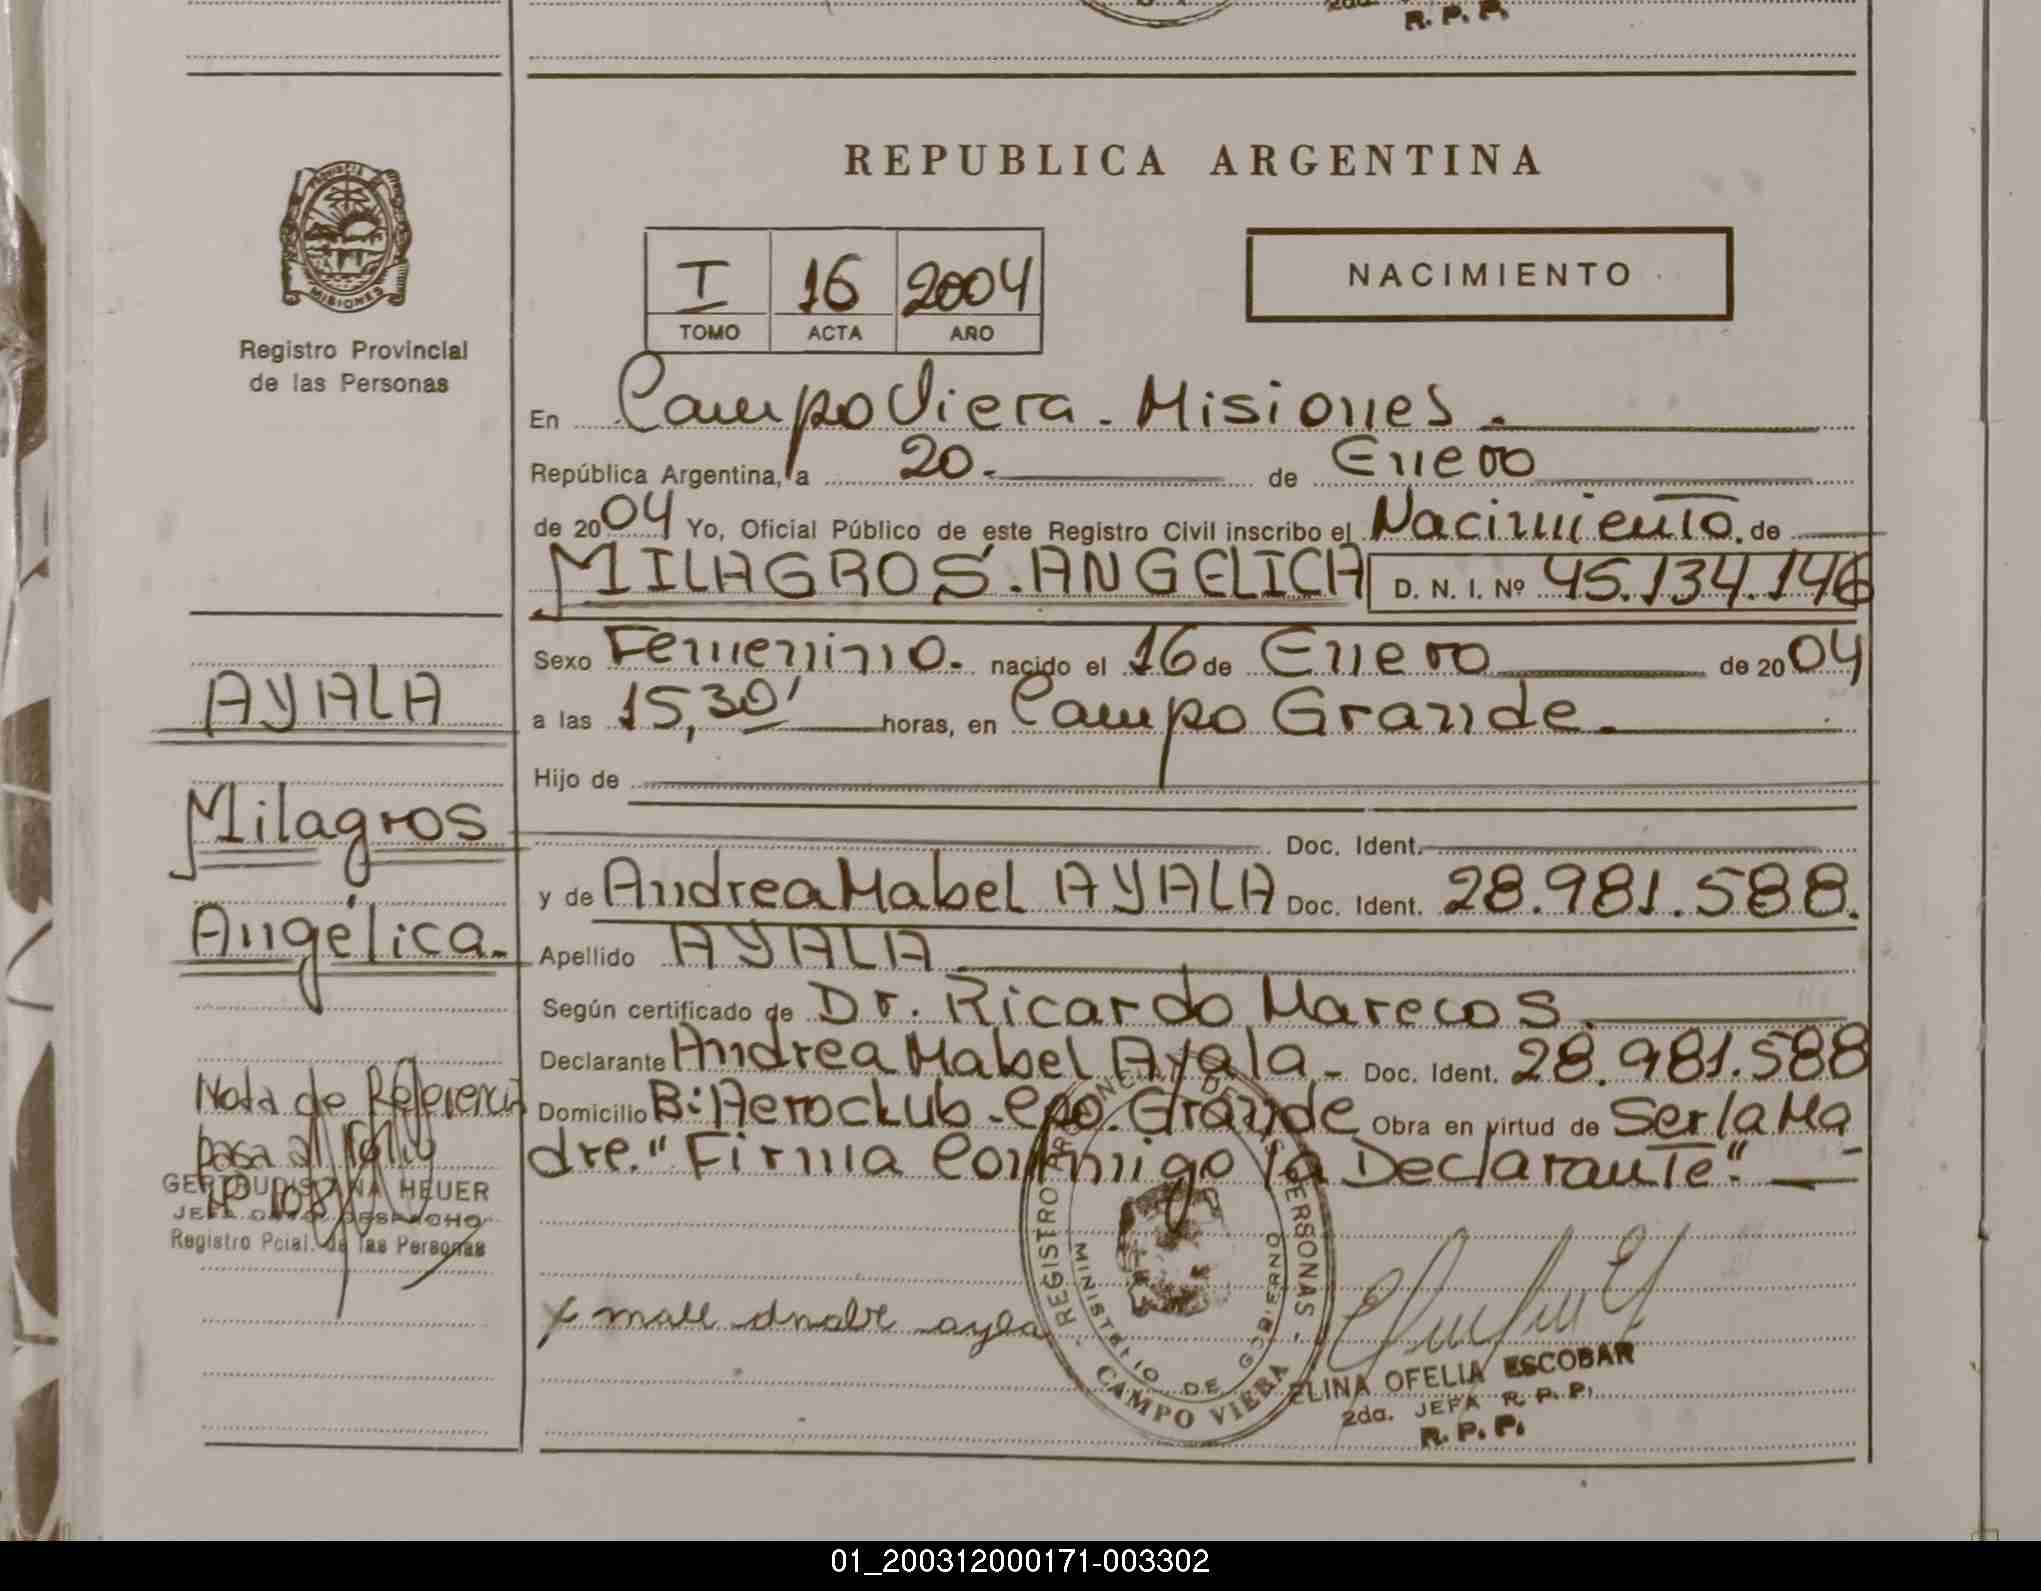 2da.
R. P. P.
REPUBLICA ARGENTINA
PROVINCIA
MISIONES
Registro Provincial
de las Personas
I 16 2004
TOMO ACTA AÑO
NACIMIENTO
En Campo Viera - Misiones.
República Argentina, a 20. de Enero
de 2004 Yo, Oficial Público de este Registro Civil inscribo el Nacimiento. de
MILAGROS. ANGELICA D. N. I. Nº 45.134.146
Sexo Femenino. nacido el 16 de Enero de 2004
a las 15,30' horas, en Campo Grande.
Hijo de
Doc. Ident.
y de Andrea Mabel AYALA Doc. Ident. 28.981.588.
Apellido AYALA
Según certificado de Dr. Ricardo Marecos.
Declarante Andrea Mabel Ayala - Doc. Ident. 28.981.588
Domicilio B: Aeroclub - Cpo. Grande Obra en virtud de Ser la Ma
dre. "Firma Conmigo la Declarante".
AYALA
Milagros
Angélica.
Nota de Referencia
pasa al folio
Nº 108
GERTRUDIS HEUER
JEFA DESPACHO
Registro Pcial. de las Personas
REGISTRO DE LAS PERSONAS
MINISTERIO DE GOBIERNO
CAMPO VIERA
ELINA OFELIA ESCOBAR
2da. JEFA R. P. P.
R. P. P.
01_200312000171-003302